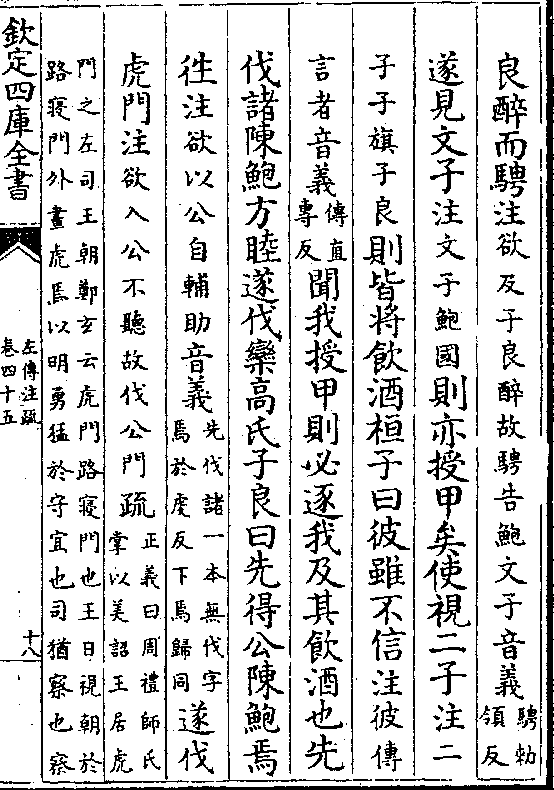 良醉而騁注欲及子良醉故騁告鮑文子音義騁勑
領反
遂見文子注文子鮑國則亦授甲矣使視二子注二
子子旗子良則皆將飲酒桓子曰彼雖不信注彼傳
言者音義傳直
專反聞我授甲則必逐我及其飲酒也先
伐諸陳鮑方睦遂伐欒高氏子良曰先得公陳鮑焉
徃注欲以公自輔助音義先伐諸一本無伐字
焉於虔反下焉歸同遂伐
虎門注欲入公不聽故伐公門疏正義曰周禮師氏
掌以美詔王居虎
門之左司王朝鄭玄云虎門路寢門也王日視朝於
路寢門外畫虎焉以明勇猛於守宜也司猶察也察
欽定四庫全書
左傳注疏
卷四十五
十八